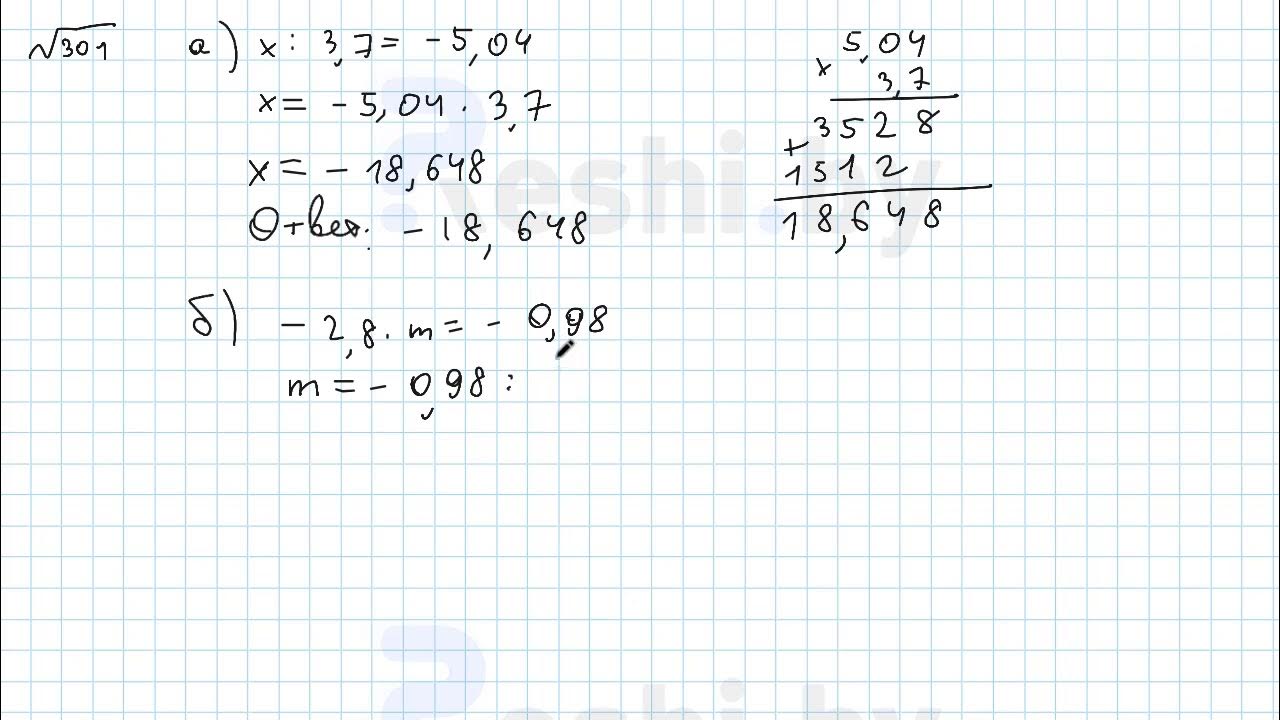 √301 а) x : 3,7 = - 5,04
x = - 5,04 · 3,7
x = - 18,648
Ответ: - 18,648
5,04
× 3,7
3528
+ 1512
18,648
б) - 2,8 · m = - 0,98
m = - 0,98 :
Reshi.by
Reshi.by